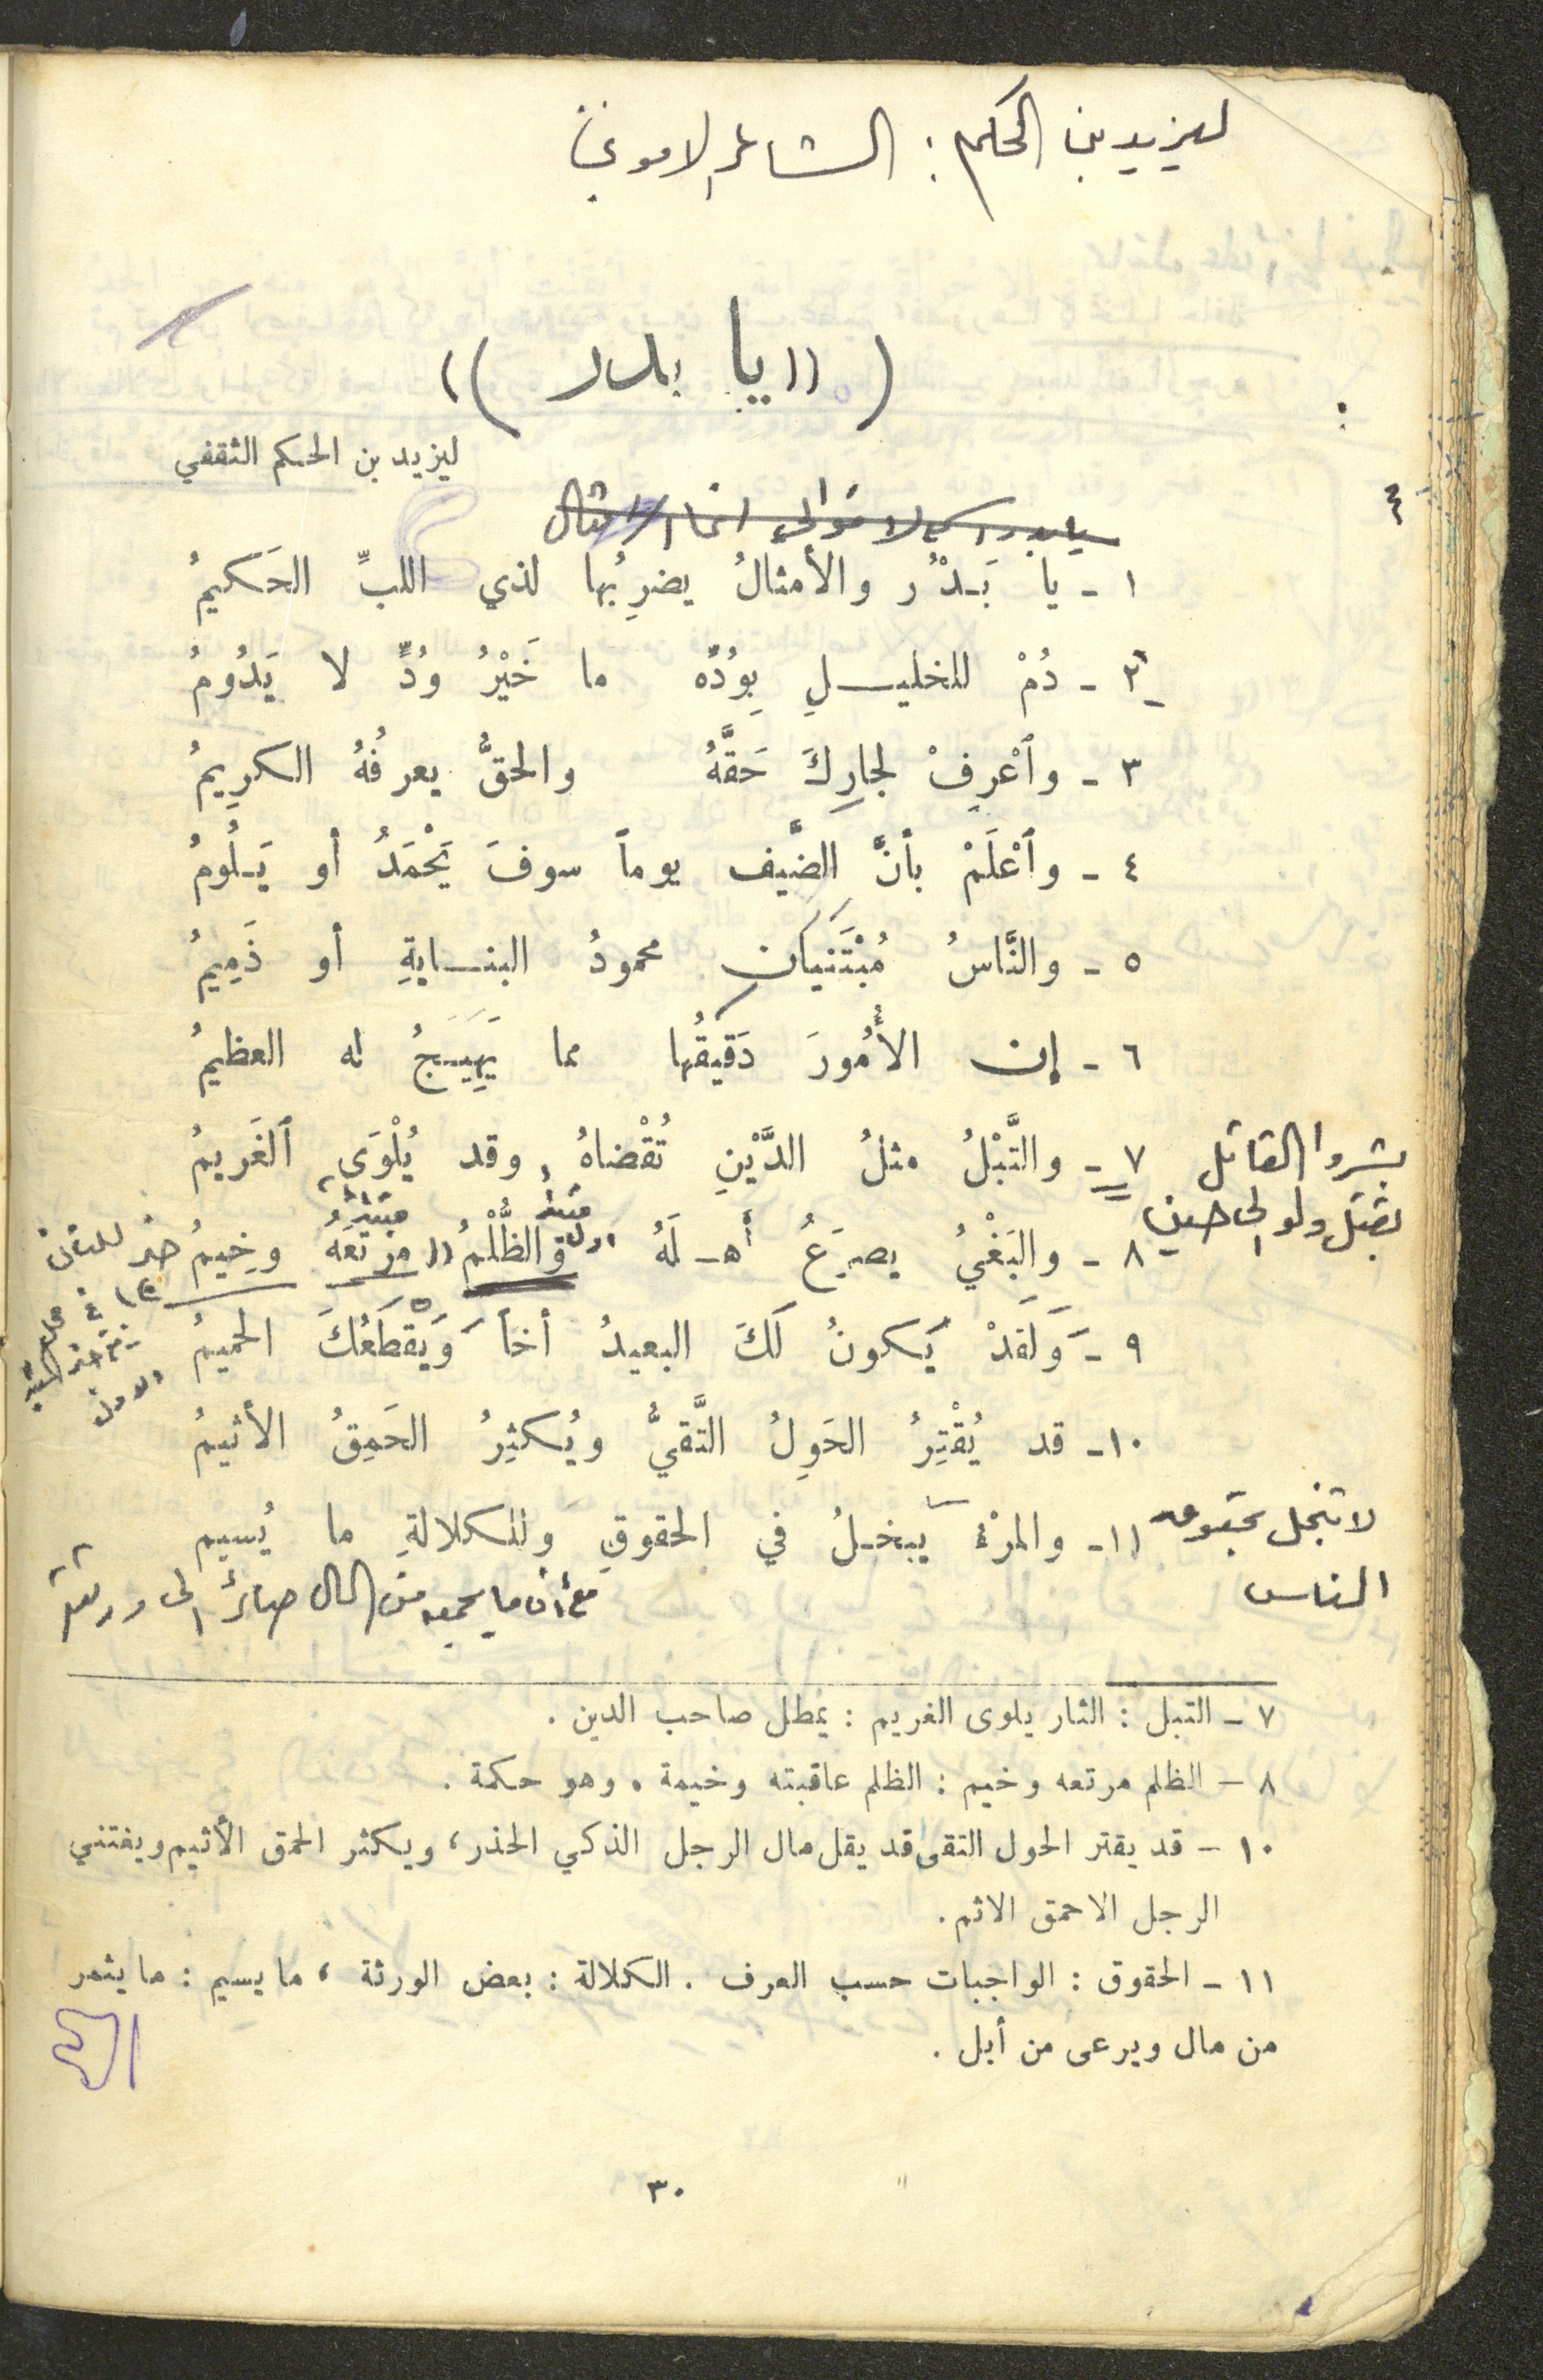 ليزيد بن الحكم : الشاعر الاموي
(( يا بدر ))
ليزيد بن الحكم الثقفي
٤
١ - يا بَدْرُ والأمثالُ يضرِبُها لذي اللبِّ الحَكيمُ
٢ - دُمْ للخليلِ بِوُدّه ما خَيْرُ وُدٍّ لا يَدُومُ
٣ - وٱعْرِفْ لجارِكَ حَقَّهُ والحقُّ يعرفُهُ الكرِيمُ
٤ - وٱعْلَمْ بأنَّ الضَّيف يوماً سوفَ يَحْمَدُ أو يَلُومُ
٥ - والنَّاسُ مُبْتَنَيانِ محمودُ البنايةِ أو ذَمِيمُ
٦ - إن الأُمُورَ دَقيقُها مما يَهِيَجُ له العظيمُ
بشروا القاتل ٧ - والتَّبْلُ مثلُ الدَّيْنِ تُقْضاهُ وقد يُلْوَى ٱلغَريمُ
بقتل ولو الى حين
مبتدأ اول مبتدأ
٨ - والبَغْيُ يصرَعُ أهلَهُ والظُّلْمُ (( مرتَعهُ وخِيمُ خبر للثاني
٩ - وَلَقدْ يَكونُ لَكَ البعيدُ أخاً وَيْقطَعُكَ الحميمُ
الاول
١٠ - قد يُقْتِرُ الحَوِلُ التَّقيُّ ويُكثِرُ الحَمِقُ الأثيمُ
لا تبخل بحقوق ١١ - والمرْءُ يبخلُ في الحقوقِ وللكلالةِ ما يُسيم
الناس
مع أن ما يجمعه من المال صائر الى ورثته
٧ - التبل : الثار يلوى الغريم : يمطل صاحب الدين .
٨ - الظلم مرتعه وخيم : الظلم عاقبته وخيمة . وهو حكمة .
١٠ - قد يقتر الحول التقى قد يقل مال الرجل الذكي الحذر ، ويكثر الحمق الأثيم ويغتني
الرجل الاحمق الاثم .
١١ - الحقوق : الواجبات حسب العرف . الكلالة : بعض الورثة ، ما يسيم : ما يثمر
من مال ويرعى من أبل .
٣٠